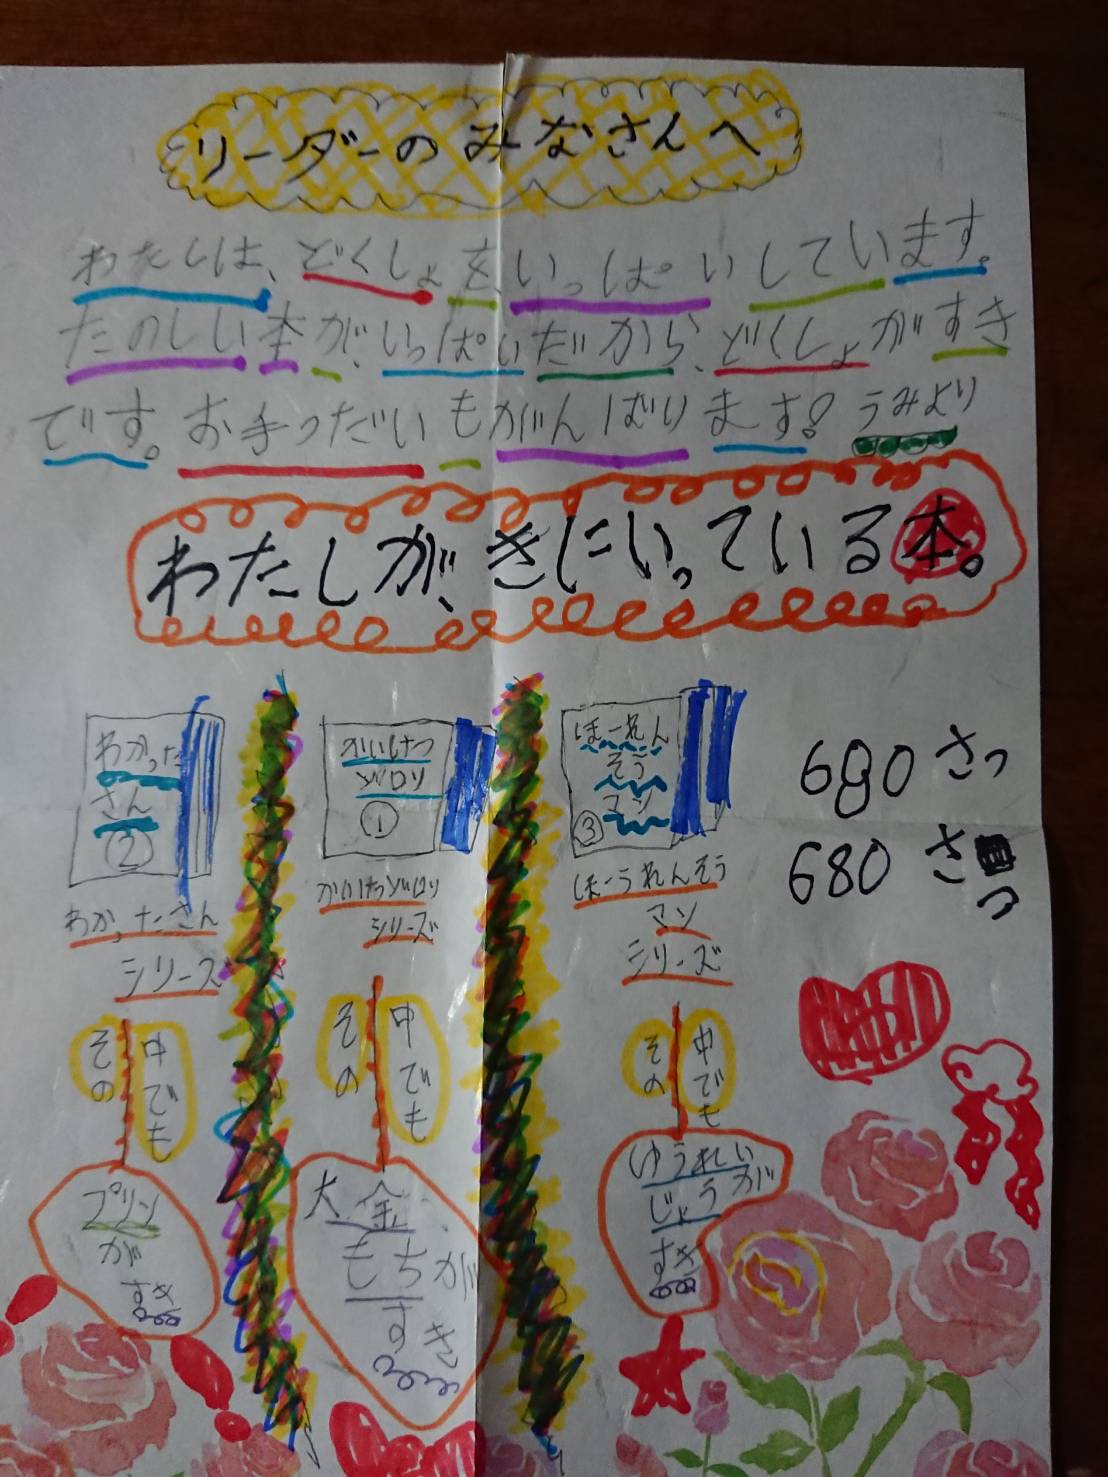 リーダーのみなさんへ
わたしは、どくしょを、いっぱいしています。
たのしい本が、いっぱいだから、どくしょがすき
です。お手つだいもがんばります! うみより
わたしが、きにいっている本。
わかった
さん
②
わかったさん
シリーズ
その
中でも
プリン
が
すき
かいけつ
ゾロリ
①
かいけつゾロリ
シリーズ
その
中でも
大金
もちが
すき
ほーれん
そう
マン
③
ほーうれんそう
マン
シリーズ
その
中でも
ゆうれい
じょうが
すき
680さっ
680さ
っ